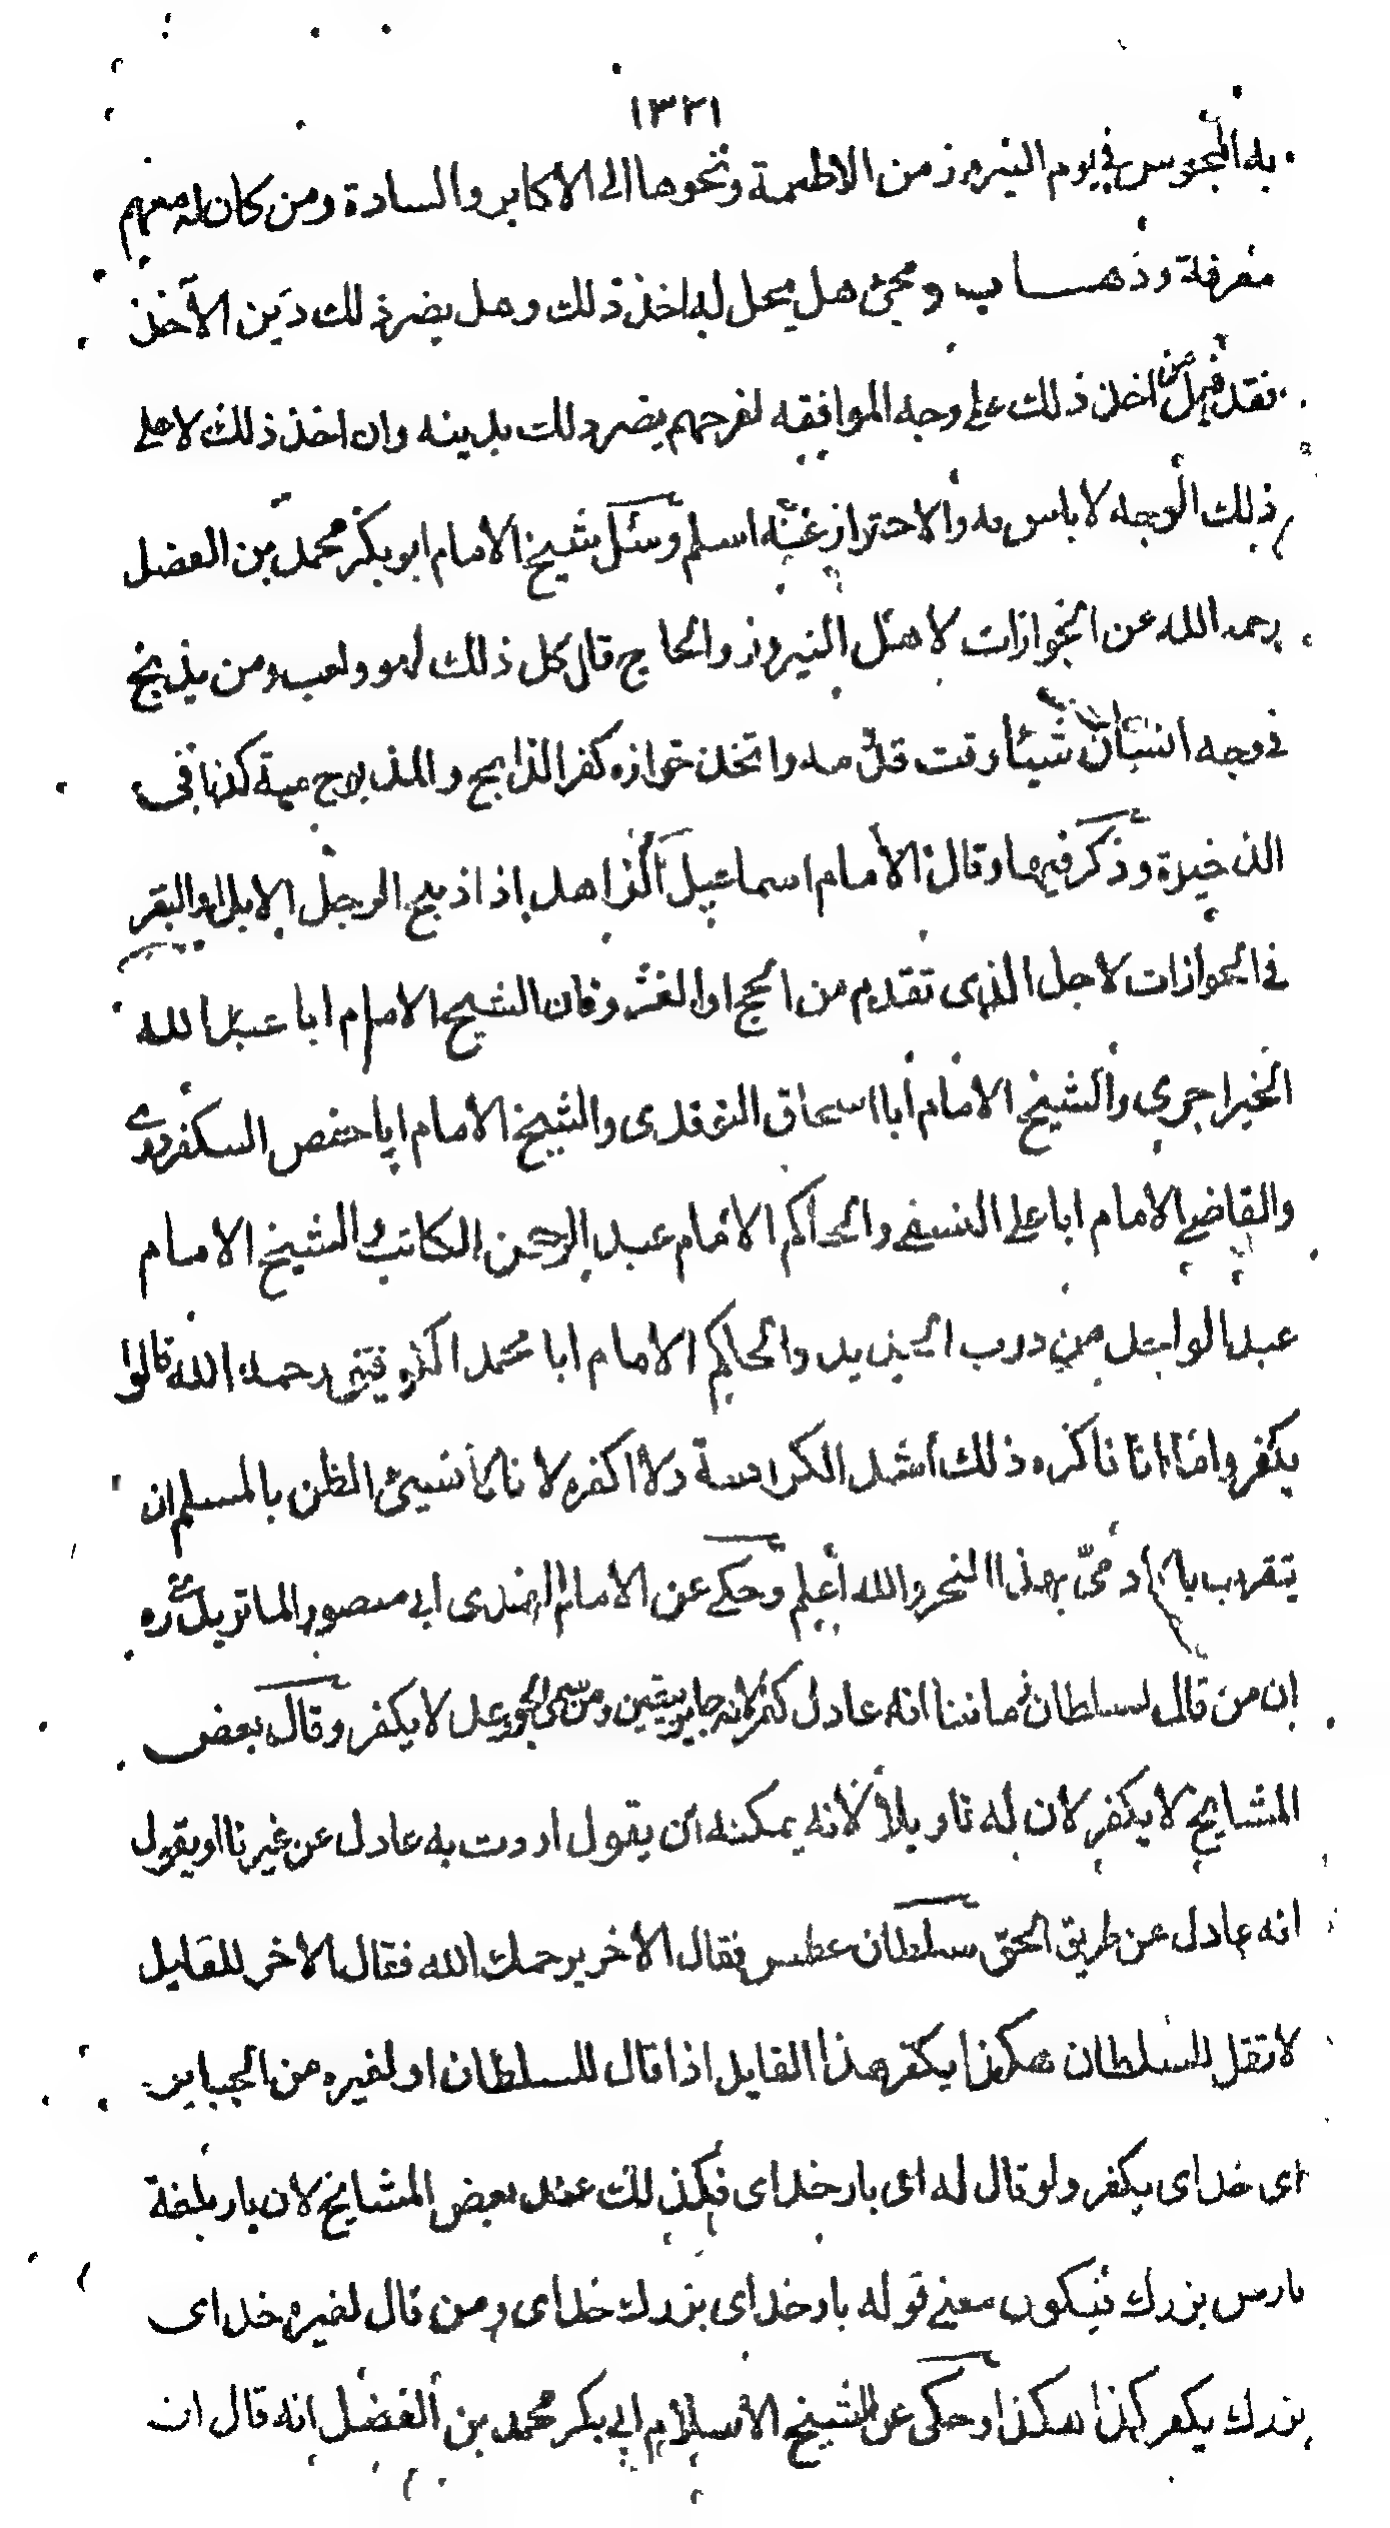 ١٣٢١
به المجوس في يوم النيروز من الاطعمة ونحوها الى الاكابر والسادة ومن كان له معهم
معرفة وذهاب ومجئ هل يحل له اخذ ذلك وهل يضر ذلك دين الآخذ
فقد قيل من اخذ ذلك على وجه الموافقه لفرحهم يضر ذلك بدينه وان اخذ ذلك لا على
ذلك الوجه لا باس به والاحتراز عنه اسلم وسئل شيخ الامام ابو بكر محمد بن الفضل
رحمه الله عن الجوازات لاهل النيروز والحاج قال كل ذلك لهو ولعب ومن يذبح
في وجه انسان شيئا وقت قدومه واتخذ جوازه كفر الذابح والمذبوح ميتة كذا في
الذخيرة وذكر فيها وقال الامام اسماعيل الزاهد اذا ذبح الرجل الابل او البقر
في الجوازات لاجل الذى تقدم من الحج او الغزو فان الشيخ الامام ابا عبد الله
الخيراجرى والشيخ الامام ابا اسحاق النوقدى والشيخ الامام ابا حفص السكفردرى
والقاضى الامام ابا على النسفى والحاكم الامام عبد الرحمن الكاتب والشيخ الامام
عبد الواحد من درب الحديد والحاكم الامام ابا محمد الكوفيني رحمه الله قالوا
يكفر واما انا فاكره ذلك اشد الكراهة ولا اكفره لانا لا نسيئ الظن بالمسلم ان
يتقرب بالادمىّ بهذا النحر والله اعلم وحكى عن الامام الهدى ابى منصور الماتريدى ره
ان من قال لسلطان زماننا انه عادل كفر لانه جاير بيقين ومن سمى الجور عدلا يكفر وقال بعض
المشايخ لا يكفر لان له تاويلا لانه يمكنه ان يقول اردت به عادل عن غيرنا او يقول
انه عادل عن طريق الحق سلطان عطس فقال الاخر يرحمك الله فقال الاخر للقايل
لا تقل للسلطان هكذا يكفر هذا القايل اذا قال للسلطان او لغيره من الجبابر
اى خداى يكفر ولو قال له اى بار خداى فكذلك عند بعض المشايخ لان بار بلغة
پارس بزرك فيكون معنى قوله بار خداى بزرك خداى ومن قال لغيره خداى
بزرك يكفر كذا هكذا وحكى عن الشيخ الاسلام ابى بكر محمد بن الفضل انه قال ان